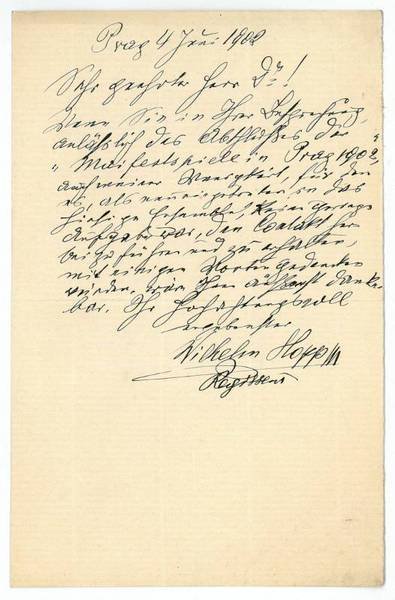 Prag 4 Juni 1902
Sehr geehrter Herr Dr!
Wenn Sie in Ihrer Besprechung,
anlässlich des Abschlusses der
"Maifestspiele in Prag 1902",
auch meiner Wenigkeit, für den
es, als neueingetreten in das
hiesige Ensemble, keine geringe
Aufgabe war, den Contakt her
beizuführen und zu erhalten,
mit einigen Worten gedenken
würden, wäre Ihnen äußerst dank
bar. Ihr hochachtungsvoll
ergebenster
Wilhelm Hopp
Regisseur